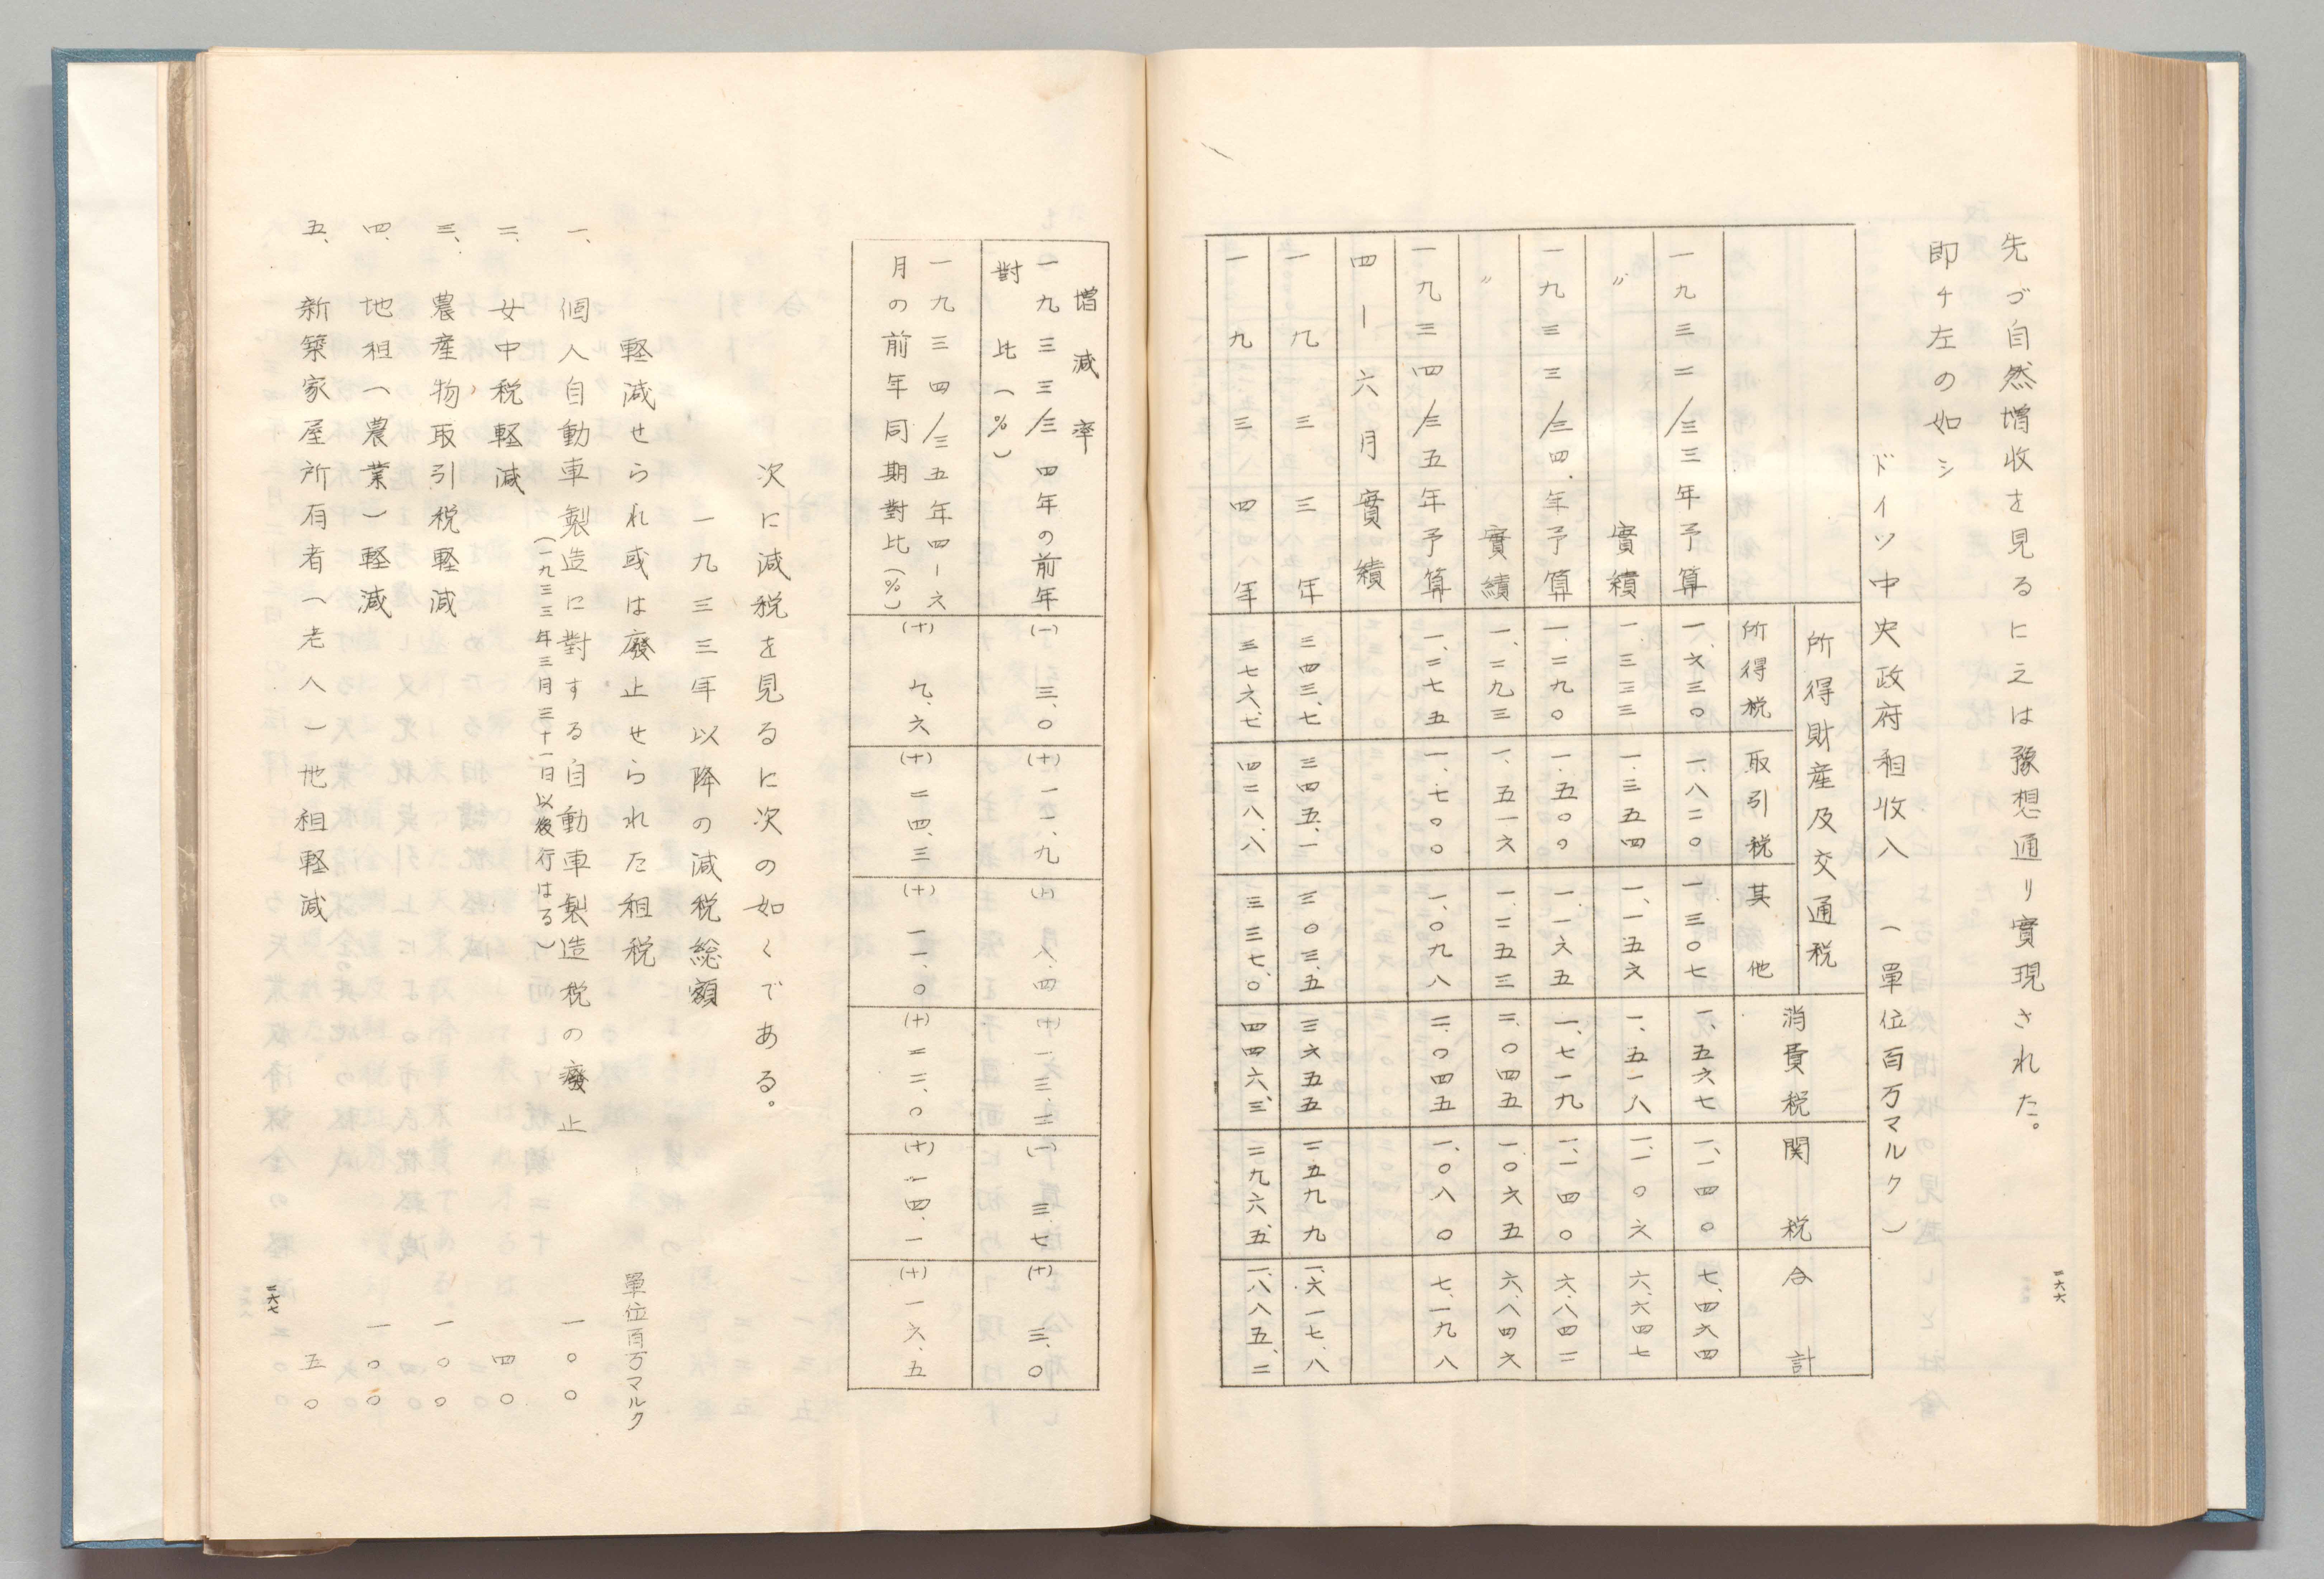 先づ自然増收を見るに之は豫想通り實現された。
即チ左の如シ
ドイツ中央政府租收入 (單位百万マルク)
所得財産及交通税
所得税 取引税 其他 消費税 関税 合計
一九三二/三三年予算 一、六三〇 一、八二〇 一、三〇七 一、五六七 一、一四〇 七、四六四
〃 實績 一、三三三 一、三五四 一、一五六 一、五一八 一、一〇六 六、六四七
一九三三/三四、年予算 一、二九〇 一、五〇〇 一、一六五 一、七一九 一、一四〇 六、八四二
〃 實績 一、二九三 一、五一六 一、二五三 二、〇四五 一、〇六五 六、八四六
一九三四/三五年予算 一、二七五 一、七〇〇 一、〇九八 二、〇四五 一、〇八〇 七、一九八
四ー六月實績
一九三三年 三四三、七 三四五、一 三〇三、五 三六五五 二五九九 一、六一七、八
一九三四年 三七六、七 四二八、八 三三七、〇 四四六、三 二九六、五 一、八八五、二
二六六
増減率
一九三三/三四年の前年
對比(%) (一)三、〇 (十)一一、九 (十)八、四 (十)一三、二 (一)三、七 (十)三、〇
一九三四/三五年四ー六
月の前年同期對比(%) (十)九、六 (十)二四、三 (十)一一、〇 (十)二二、〇 (十)一四、一 (十)一六、五
次に減税を見るに次の如くである。
一九三三年以降の減税総額
軽減せられ或は廢止せられた租税 單位百万マルク
一、個人自動車製造に對する自動車製造税の廢止 一〇〇
(一九三三年三月三十一日以後行はる)
二、女中税軽減 四〇
三、農産物取引税軽減 一〇〇
四、地租(農業)軽減 一〇〇
五、新築家屋所有者(老人)地租軽減 五〇
二六七